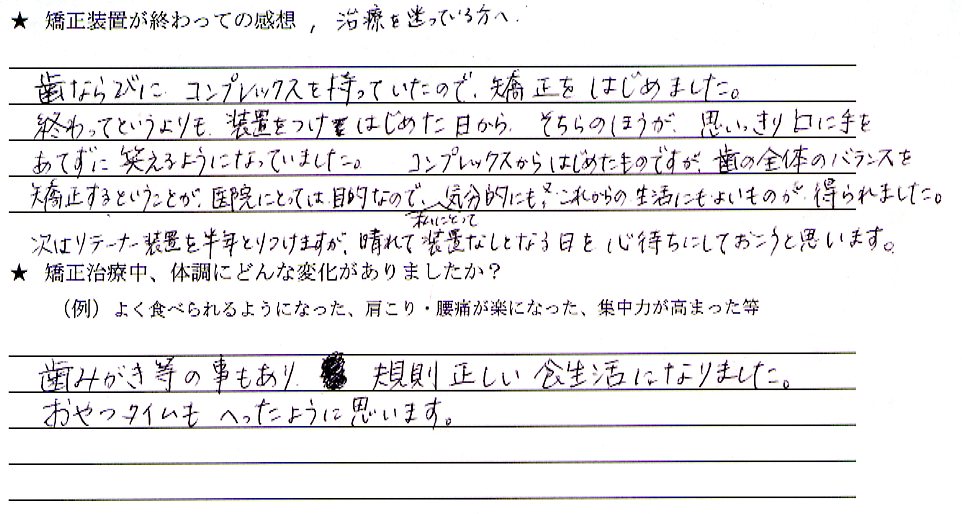 ★ 矯正装置が終わっての感想 , 治療を迷っている方へ.
歯ならびに コンプレックスを持っていたので、矯正を はじめました。
終わってというよりも、装置をつけはじめた日から、そちらのほうが、思いっきり口に手を
あてずに笑えるようになっていました。 コンプレックスからはじめたものですが、歯の全体のバランスを
矯正するということが、医院にとっては目的なので、気分的にも、これからの生活にもよいものが得られました。
私にとって
次はリテーナー装置を半年とりつけますが、晴れて装置なしとなる日を心待ちにしておこうと思います。
★ 矯正治療中、体調にどんな変化がありましたか？
（例）よく食べられるようになった、肩こり・腰痛が楽になった、集中力が高まった等
歯みがき等の事もあり 規則正しい食生活になりました。
おやつタイムも へったように思います。